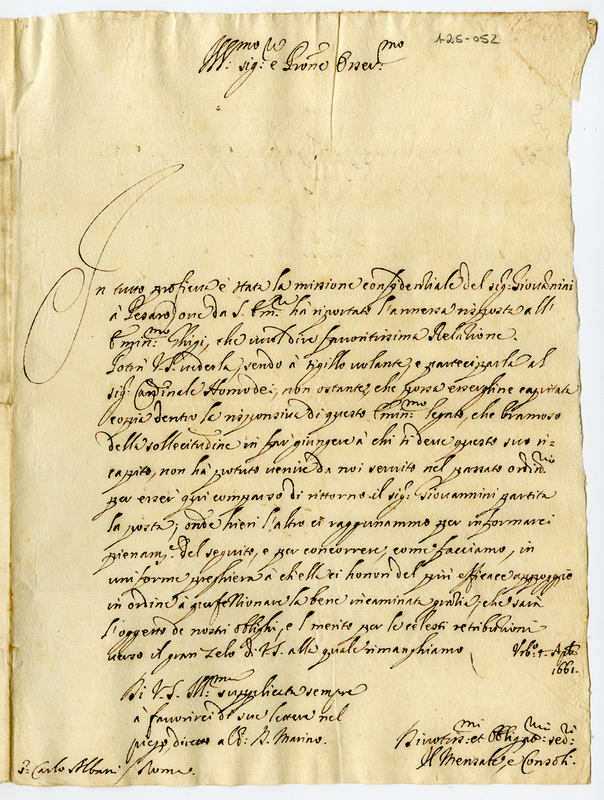 125-052
Ill:mo sig:re e Prone Osser:mo
In tutto proficua è stata la missione confidentiale del sig: Giovannini
à Pesaro, ove da S. Em:za hà riportato l'annessa risposta all'
Emin:mo Ghigi, che vuol dire favoritissima Relatione.
Potrà V.S. vederla, sendo à sigillo volante, e parteciparla al
sig: Cardinale Homodei, non ostante, che possa esserghine capitata
copia dentro la risponsiva di questo Emin:mo legato, che bramoso
della sollecitudine in far giungere à chi si deve questo suo ri-
capito, non hà potuto venire da noi servito nel passato ordin:rio
per esser qui comparso di ritorno il sig: Giovannini partita
la posta; onde hieri l'altro ci raggunammo per informarci
pienam:e del seguito, e per concorrere, come facciamo, in
uniforme preghiera à ch'ella ci honori del più efficace appoggio
in ordine à perfettionare la bene incaminata gratia, che sarà
l'oggetto de nostri oblighi, e l merito per le celesti retributioni
verso il gran zelo di V.S. alla quale rimanghiamo
Urb:o 4. 1661.
Di V.S. Ill:ma supplicata sempre
à favorirci di sue lettere nel
piego diretto al S. Marino.
Divotis:mi et Obligat:mi ser:ri
Il Mensale, e Consoli.
S: Carlo Albani / Roma.